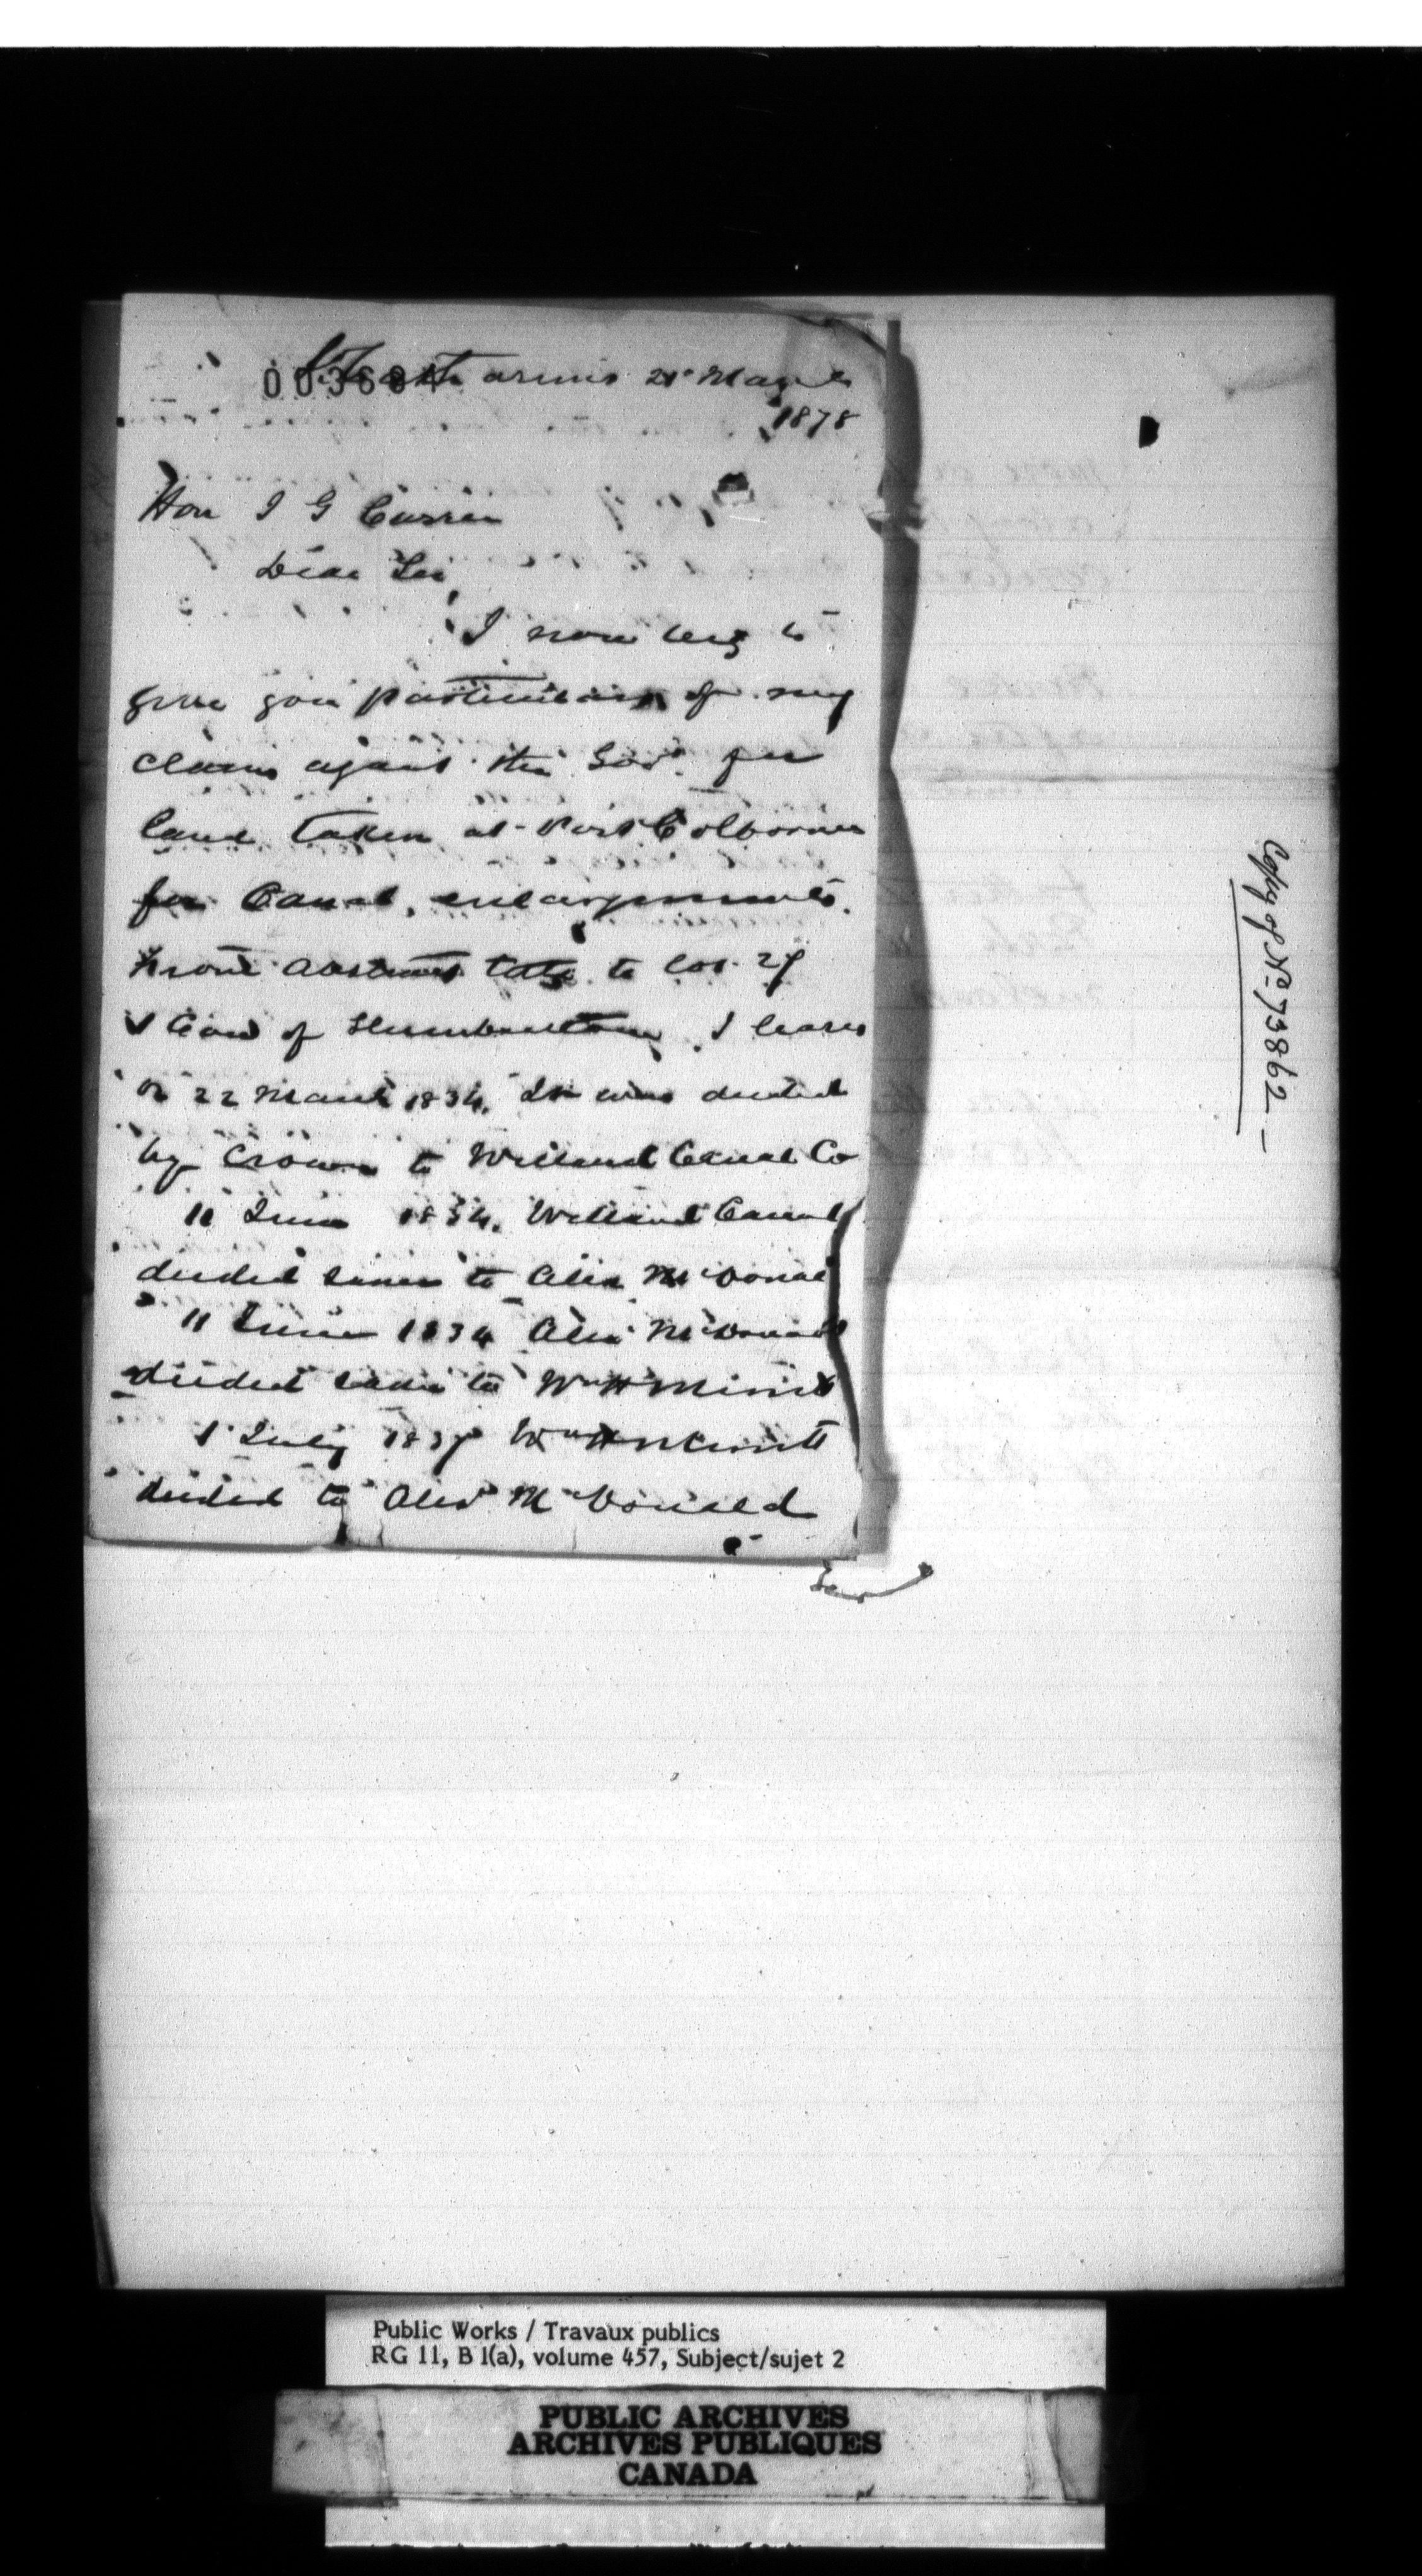 St Catharines 21 March
1878
Hon J G Currie
Dear Sir
I now beg to
give you particulars of my
claim against the Govt for
land taken at Port Colborne
for Canal enlargements.
From abstract title to lot 27
1 Con of Humberstone I learn
on 22 March 1834. It was deeded
by Crown to Welland Canal Co
11 June 1834. Welland Canal
deeded same to Alex McDonald
11 June 1834 Alex McDonald
deeded same to Wm H Merritt
1 July 1837 Wm H Merritt
deeded to Alex McDonald
Copy of No 73862
Public Works / Travaux publics
RG 11, B 1(a), volume 457, Subject/sujet 2
PUBLIC ARCHIVES
ARCHIVES PUBLIQUES
CANADA